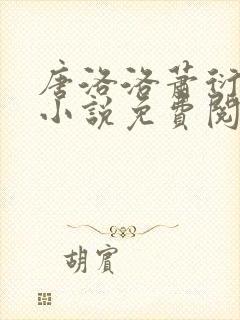 唐洛洛萧衍
小說免費閱
胡賓